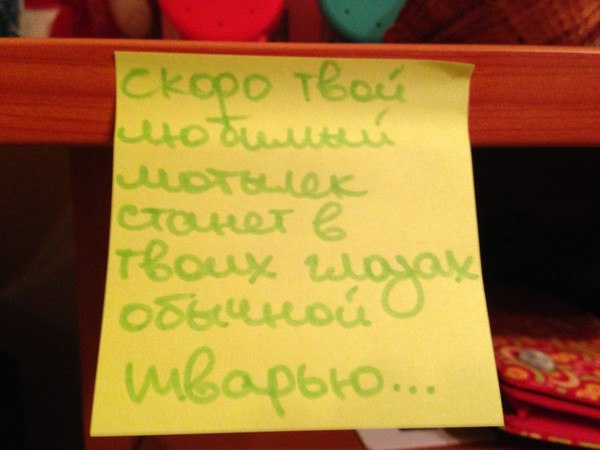 Скоро твой
любимый
мотылек
станет в
твоих глазах
обычной
тварью...